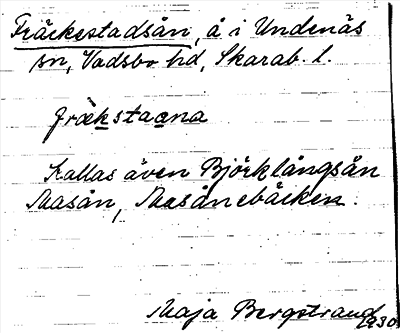 Fräckestadsån, å i Undenäs
sn, Vadsbo hd, Skarab. l.
fräkstaana
Kallas även Björklångsån
Masån, Masånebäcken.
Maja Bergstrand
1930